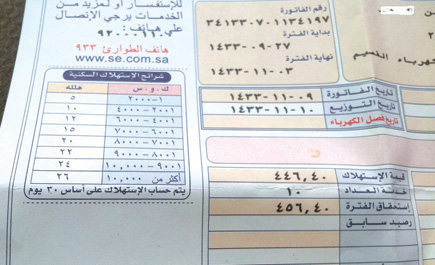 للإستفسار أو لمزيد من
الخدمات يرجي الإتصال
على هاتف:
هاتف الطوارئ ٩٣٣
www.se.com.sa
شرائح الإستهلاك السكنية
ك.و.س هللة
١-٢٠٠٠ ٥
٢٠٠١-٤٠٠٠ ١٠
٤٠٠١-٦٠٠٠ ١٢
٦٠٠١-٧٠٠٠ ١٥
٧٠٠١-٨٠٠٠ ٢٠
٨٠٠١-٩٠٠٠ ٢٢
٩٠٠١-١٠,٠٠٠ ٢٤
أكثر من ١٠,٠٠٠ ٢٦
يتم حساب الإستهلاك على أساس ٣٠ يوم
رقم الفاتورة
٣٤١٣٣٠٧٠١١٣٤١٩٧
بداية الفترة
١٤٣٣-٠٩-٢٧
نهاية الفترة
١٤٣٣-١١-٠٣
كهرباء النسيم
تاريخ الفاتورة ١٤٣٣-١١-٠٩
تاريخ التوزيع ١٤٣٣-١١-١٠
تاريخ فصل الكهرباء
قيمة الإستهلاك ٤٤٦,٤٠
خدمة العداد ١٠
إستحقاق الفترة ٤٥٦,٤٠
رصيد سابق